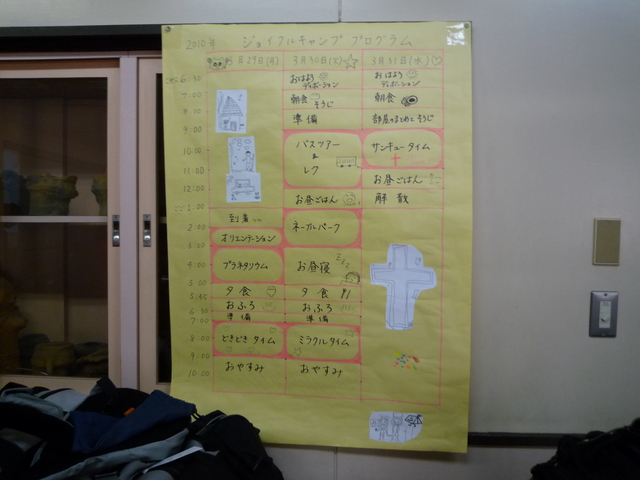 2010年 ジョイフルキャンププログラム
3月29日(月) 3月30日(火) 3月31日(水)
6:30 おはよう おはよう
ディボーション ディボーション
7:00 朝食 そうじ 朝食
8:00 準備 部屋のまとめとそうじ
9:00 バスツアー サンキュータイム
10:00 &
11:00 レク お昼ごはん
12:00 お昼ごはん 解散
1:00 到着
2:00 オリエンテーション ネーブルパーク
3:00
4:00 プラネタリウム お昼寝
5:00 夕食 夕食
5:45 おふろ おふろ
6:30 準備 準備
7:00
8:00 どきどきタイム ミラクルタイム
9:00
10:00 おやすみ おやすみ